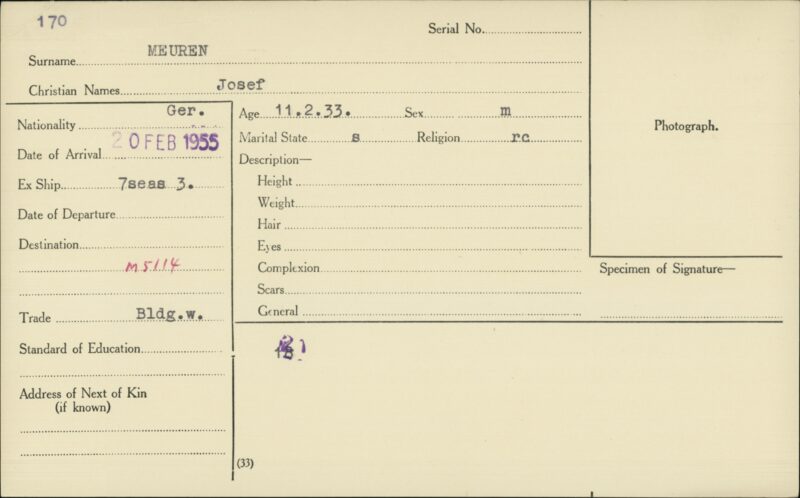 170
Serial No.
Surname MEUREN
Christian Names Josef
Nationality Ger.
Date of Arrival 20 FEB 1955
Ex Ship 7seas 3.
Date of Departure
Destination
M5114
Trade Bldg.w.
Standard of Education
Address of Next of Kin
(if known)
Age 11.2.33. Sex m
Marital State s Religion rc
Description—
Height
Weight
Hair
Eyes
Complexion
Scars
General
(33)
Photograph.
Specimen of Signature—